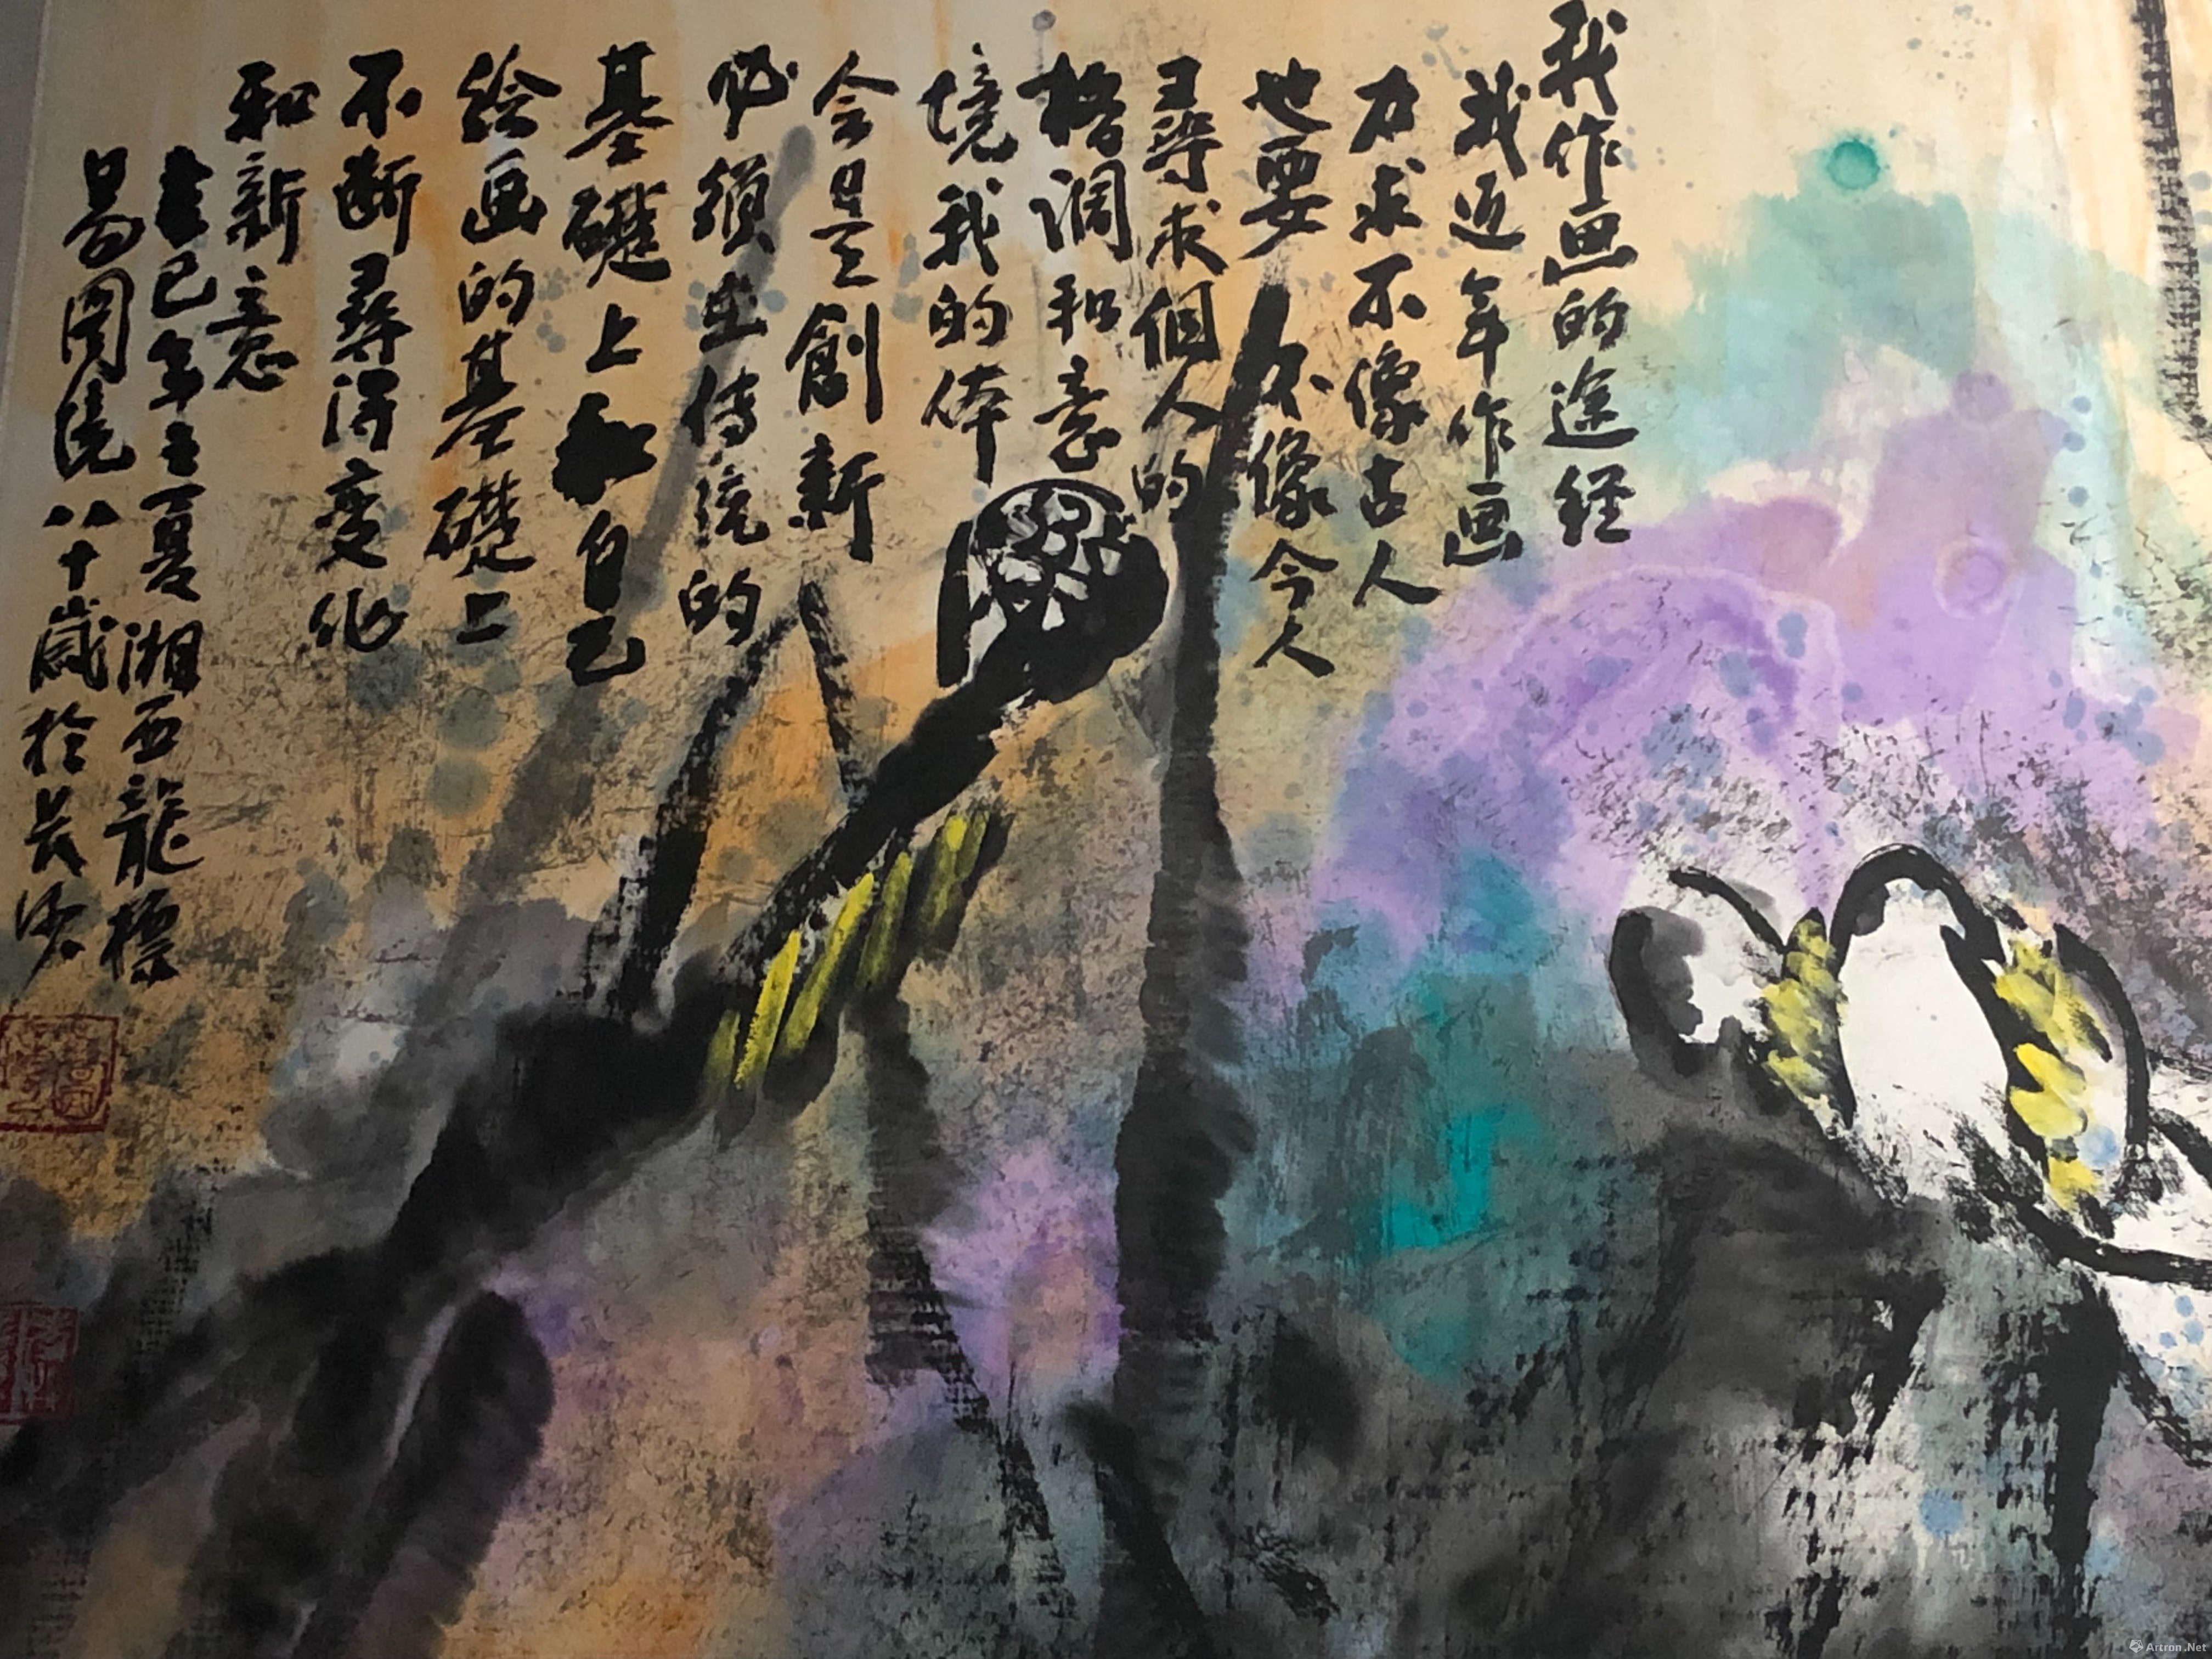 我作画的途经
我近年作画
力求不像古人
也要不像今人
寻求個人的
格调和意
境我的体
会是創新
必须在传统的
基礎上和自己
绘画的基礎上
不断尋得变化
和新意
己年之夏湘西龍標
易图境八十歲於长沙
Artron.Net